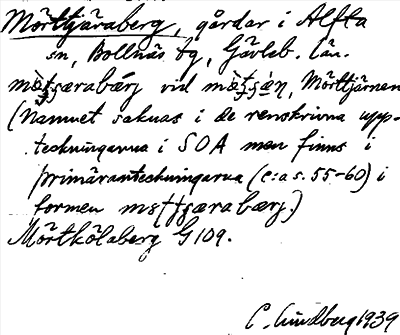 Mörttjäraberg, gårdar i Alfta
sn, Bollnäs tg, Gävleb. län.
vid Mörttjärnen
(Namnet saknas i de renskrivna upp-
teckningarna i SOA men finns i
primäranteckningarna (c:a s. 55-60) i
formen
Mörtkölaberg G 109.
C. Lindberg 1939